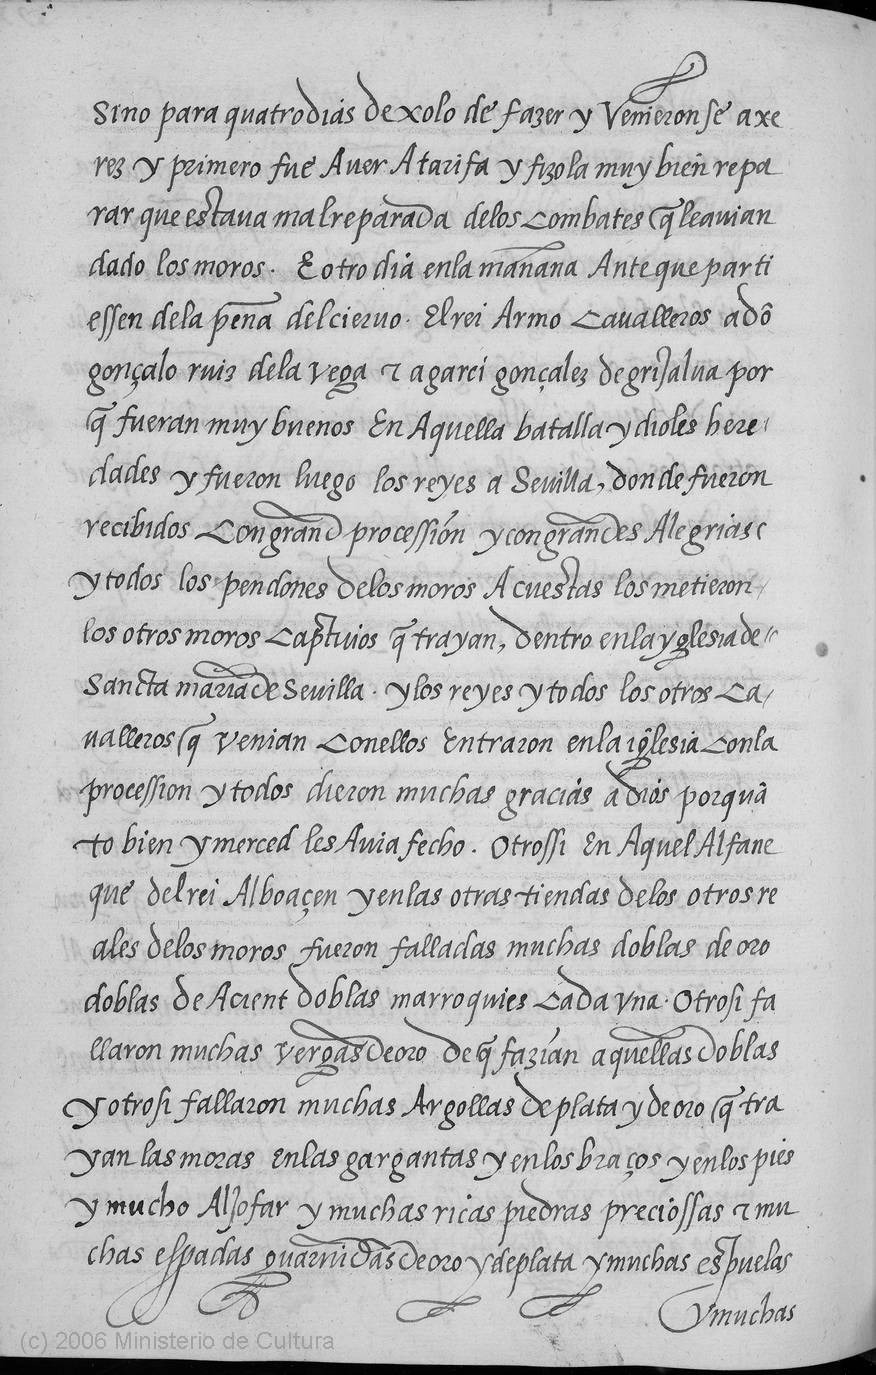 sino para quatro dias dexolo de fazer y Venieronse axe
rez y primero fue Aver Atarifa y fizola muy bien repa
rar que estaua mal reparada delos combates q̃ leauian
dado los moros. E otro dia enla mañana Ante que parti
essen dela peña del cieruo. El rei Armo Caualleros a dõ
gonçalo ruiz dela vega τ a garci gonçalez de grijalua por
q̃ fueran muy buenos En Aquella batalla y dioles here
dades y fueron luego los reyes a Seuilla, donde fueron
recibidos Con grand processión y con grandes Alegrias
y todos los pendones delos moros Acuestas los metieron
los otros moros Captiuios q̃ trayan, dentro enla yglesia de
Sancta maria de Seuilla. y los reyes y todos los otros Ca
ualleros q̃ venian Conellos Entraron enla iglesia Conla
procession y todos dieron muchas gracias a dios porquã
to bien y merced les Auia fecho. Otrossi En Aquel Alfane
que del rei Alboaçen y enlas otras tiendas delos otros re
ales delos moros fueron falladas muchas doblas de oro
doblas de Acient doblas marroquies Cada vna. Otrosi fa
llaron muchas vergas de oro de q̃ fazían aquellas doblas
y otrosi fallaron muchas Argollas de plata y de oro q̃ tra
yan las moras enlas gargantas y enlos braços y enlos pies
y mucho Aljofar y muchas ricas piedras preciossas τ mu
chas espadas guarnidas de oro y de plata y muchas espuelas
y muchas
(c) 2006 Ministerio de Cultura